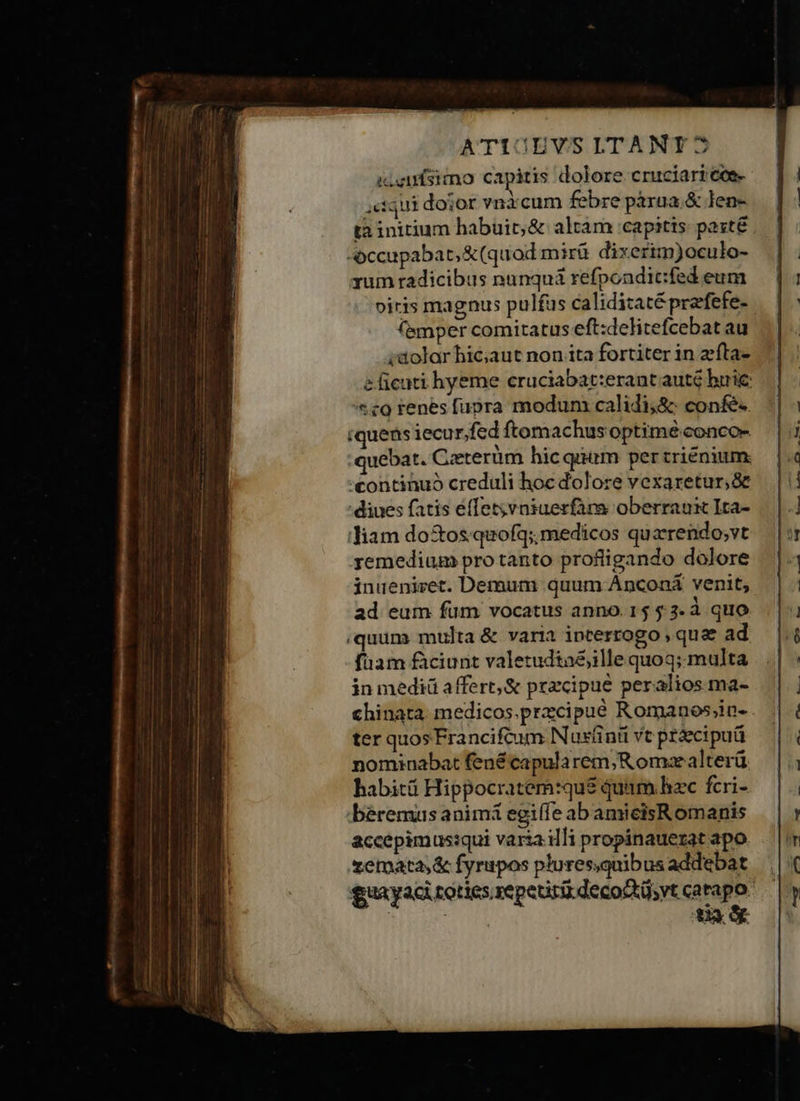 ATIGEVS LTANI?
ucuſsimo capitis dolore cruciari
cıqui dolor vnà cum febre pàrua, & len-
tà initium habuit, & altam capitis partē
occupabat, & (quod mirũ dixerim) oculo-
rum radicibus nunquã reſpondit: ſed eum
oitis magnus pulſus caliditatē præſefe-
ſemper comitatus eſt: deliteſcebat au
dolor hic, aut non ita fortiter in æſta-
e ſicuti hyeme cruciabat: erant autē huic
renes ſupra modum calidi, & conſē-
quens iecur, ſed ſtomachus optimè conco-
quebat. Cæterùm hic quum per triénium
continuò creduli hoc dolore vexaretur, &
diues ſatis eſſet, vniuerſam oberrauit Ita-
liam doctosquoſq; medicos quærendo, vt
remedium pro tanto profligando dolore
inueniret. Demum quum Anconã venit,
ad eum ſum vocatus anno 1553. à quo
quum multa & varia interrogo, quæ ad
ſuam faciunt valetudinē, ille quoq; multa
in mediũ affert, & præcipuè per alios ma-
chinata medicos. præcipuè Romanos, in-
ter quos Franciſcum Nurſinũ vt præcipuũ
nominabat ſenē capularem, Romæ alterũ
habitũ Hippocratem: quē quum hæc ſcri-
beremus animã egiſſe ab amicis Romanis
accepimus: qui varia illi propinauerat apo
zemata, & ſyrupos plures, quibus addebat
guayaci toties repetitũ decoctũ, vt catapo
tia &